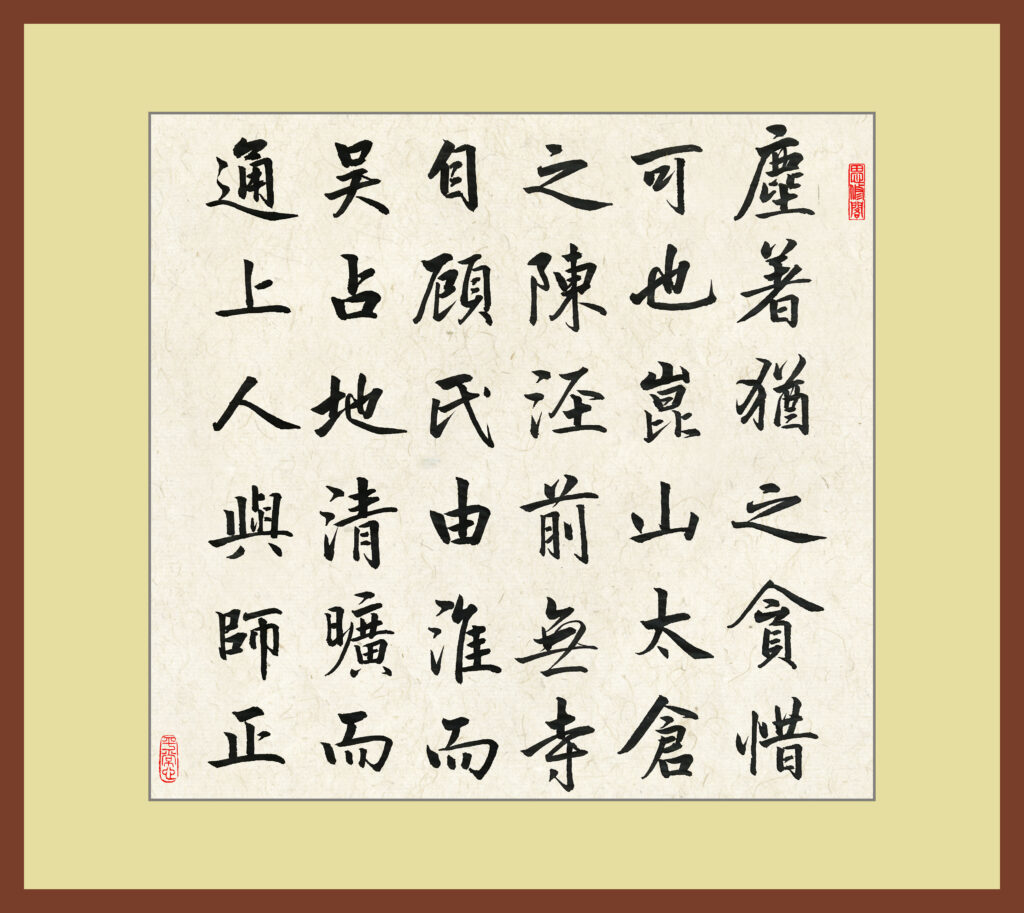 塵著猶之貪惜
可也崑山太倉
之陳涇前無寺
自顧氏由淮而
吴占地清曠而
通上人與師正